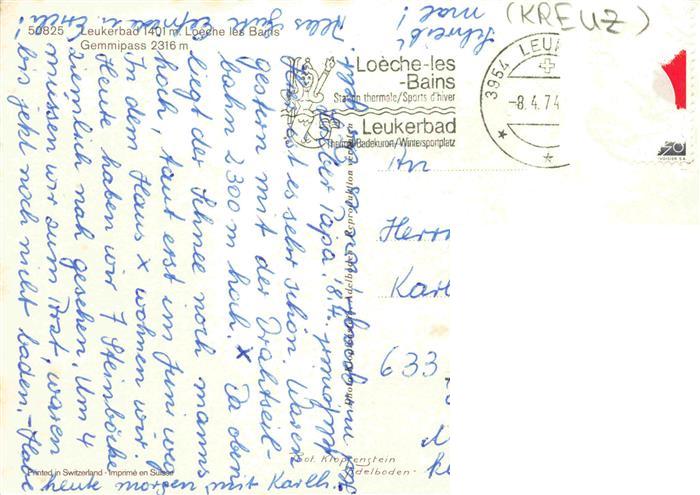 50825 Leukerbad 1401 m. Loèche les Bains
Gemmipass 2316 m
(KREUZ)
3954 LEUK
-8.4.74
Loèche-les
-Bains
Station thermale/Sports d'hiver
Leukerbad
Thermal-Badekurort/Wintersportplatz
Lieber Papa! 8.4.
Hier ist es sehr schön. Waren
gestern mit der Drahtseil-
bahn 2300 m hoch. x Da oben
liegt der Schnee noch manns
hoch, taut erst im Juni weg
In dem Haus x wohnen wir
Heute haben wir 7 Steinböcke
ziemlich nah gesehen. Um 4
müssen wir zum Arzt, waren
bis jetzt noch nicht baden. - Habe
heute morgen mit Karlh.
Alles Gute Elfriede u. Erich!
Schreib'
mal!
An
Herrn
Karl
633
Phot. Klopfenstein
Adelboden
Printed in Switzerland - Imprimé en Suisse